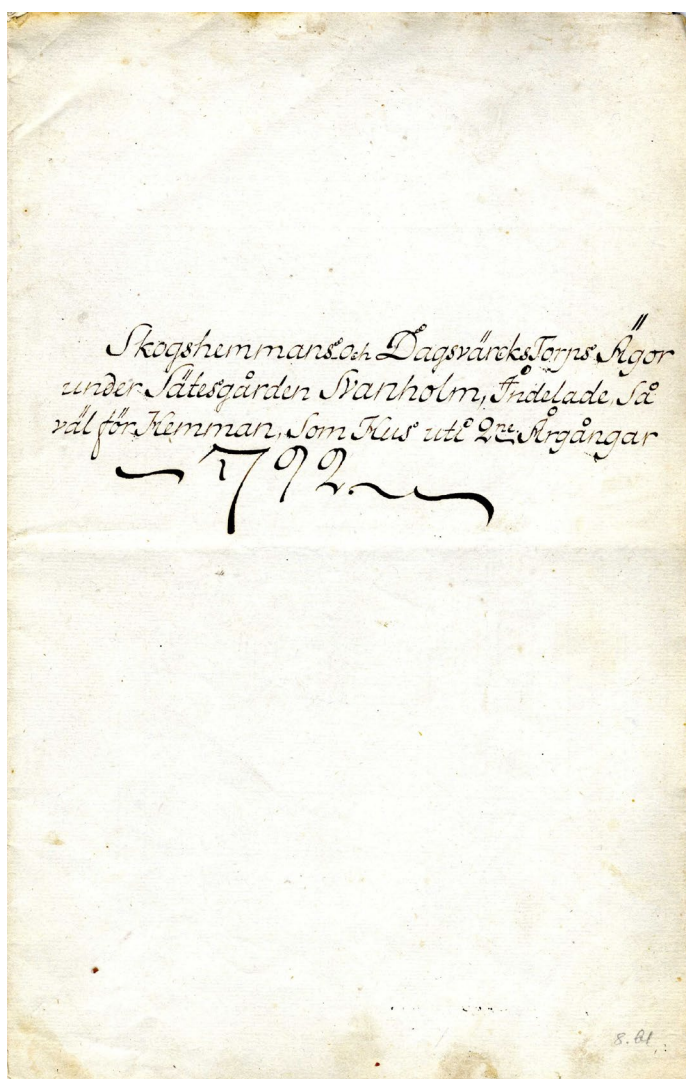 Skogshemmans och Dagsvärcks Torps Ägor
under Sätesgården Svanholm, Indelade, Så
väl för Hemman, Som Hus uti 2ne Årgångar
1792.
8. bl.